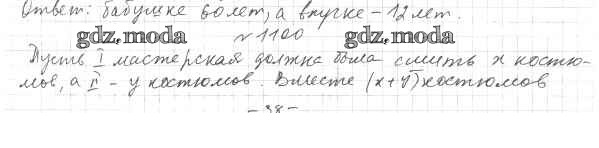 Ответ: бабушке 60 лет, а внучке - 12 лет.
gdz.moda №1100 gdz.moda
Пусть I мастерская должна была сшить x костю-
мов, а II - y костюмов. Вместе (x+y) костюмов
- 38 -